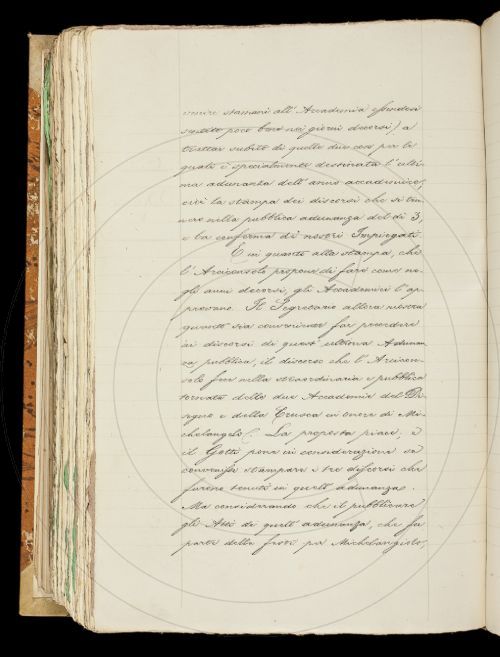 venire stamani all'Accademia essendosi
sentito poco bene nei giorni decorsi) a
trattar subito di quelle due cose per le
quali è specialmente destinata l'ulti-
ma adunanza dell'anno accademico,
cioè la stampa dei discorsi che si ten-
nero nella pubblica adunanza del dì 3,
e la conferma di nostri Impiegati.
E in quanto alla stampa, che
l'Arciconsolo propone di fare come ne-
gli anni decorsi, gli Accademici l'ap-
provano. Il Segretario allora mostra
quanto sia conveniente far precedere
ai discorsi di quest'ultima Adunan-
za pubblica, il discorso che l'Arcicon-
solo fece nella straordinaria e pubblica
tornata delle due Accademie del Di-
segno e della Crusca in onore di Mi-
chelangelo. La proposta piace, e
il Gotti pone in considerazione se
convenisse stampare i tre discorsi che
furono tenuti in quell'adunanza.
Ma considerando che il pubblicare
gli Atti di quell'adunanza, che fu
parte delle feste per Michelangiolo,